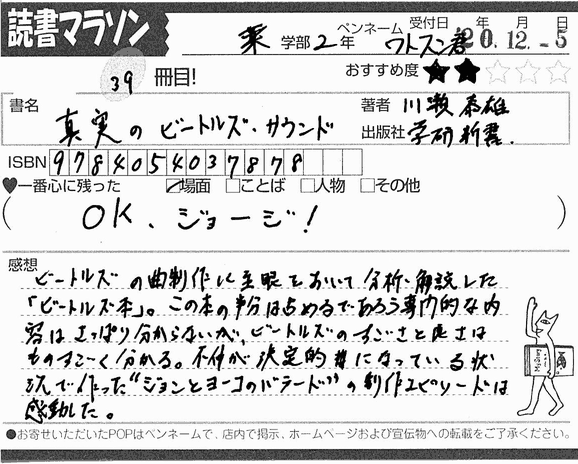 読書マラソン
薬 学部 2 年 ペンネーム ワトスン君 受付日 年 月 日 20.12.-5
39 冊目! おすすめ度 ★★☆☆☆
書名 真実のビートルズ・サウンド 著者 川瀬泰雄
出版社 学研新書.
ISBN 9784054037878
♥一番心に残った ☑場面 □ことば □人物 □その他
( OK、ジョージ! )
感想
ビートルズの曲制作に主眼をおいて分析・解説した
「ビートルズ本」。この本の半分は占めるであろう専門的な内
容はさっぱり分からないが、ビートルズのすごさと良さは
ものすごーく分かる。不仲が決定的になっている状
況で作った“ジョンとヨーコのバラード”の制作エピソードは
感動した。
●お寄せいただいたPOPはペンネームで、店内で掲示、ホームページおよび宣伝物への転載をご了承ください。